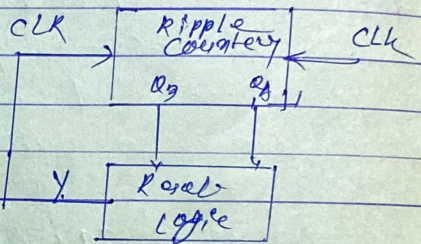 CLR
Ripple
Counter
CLK
QB
QA
Y
Reset
Logic